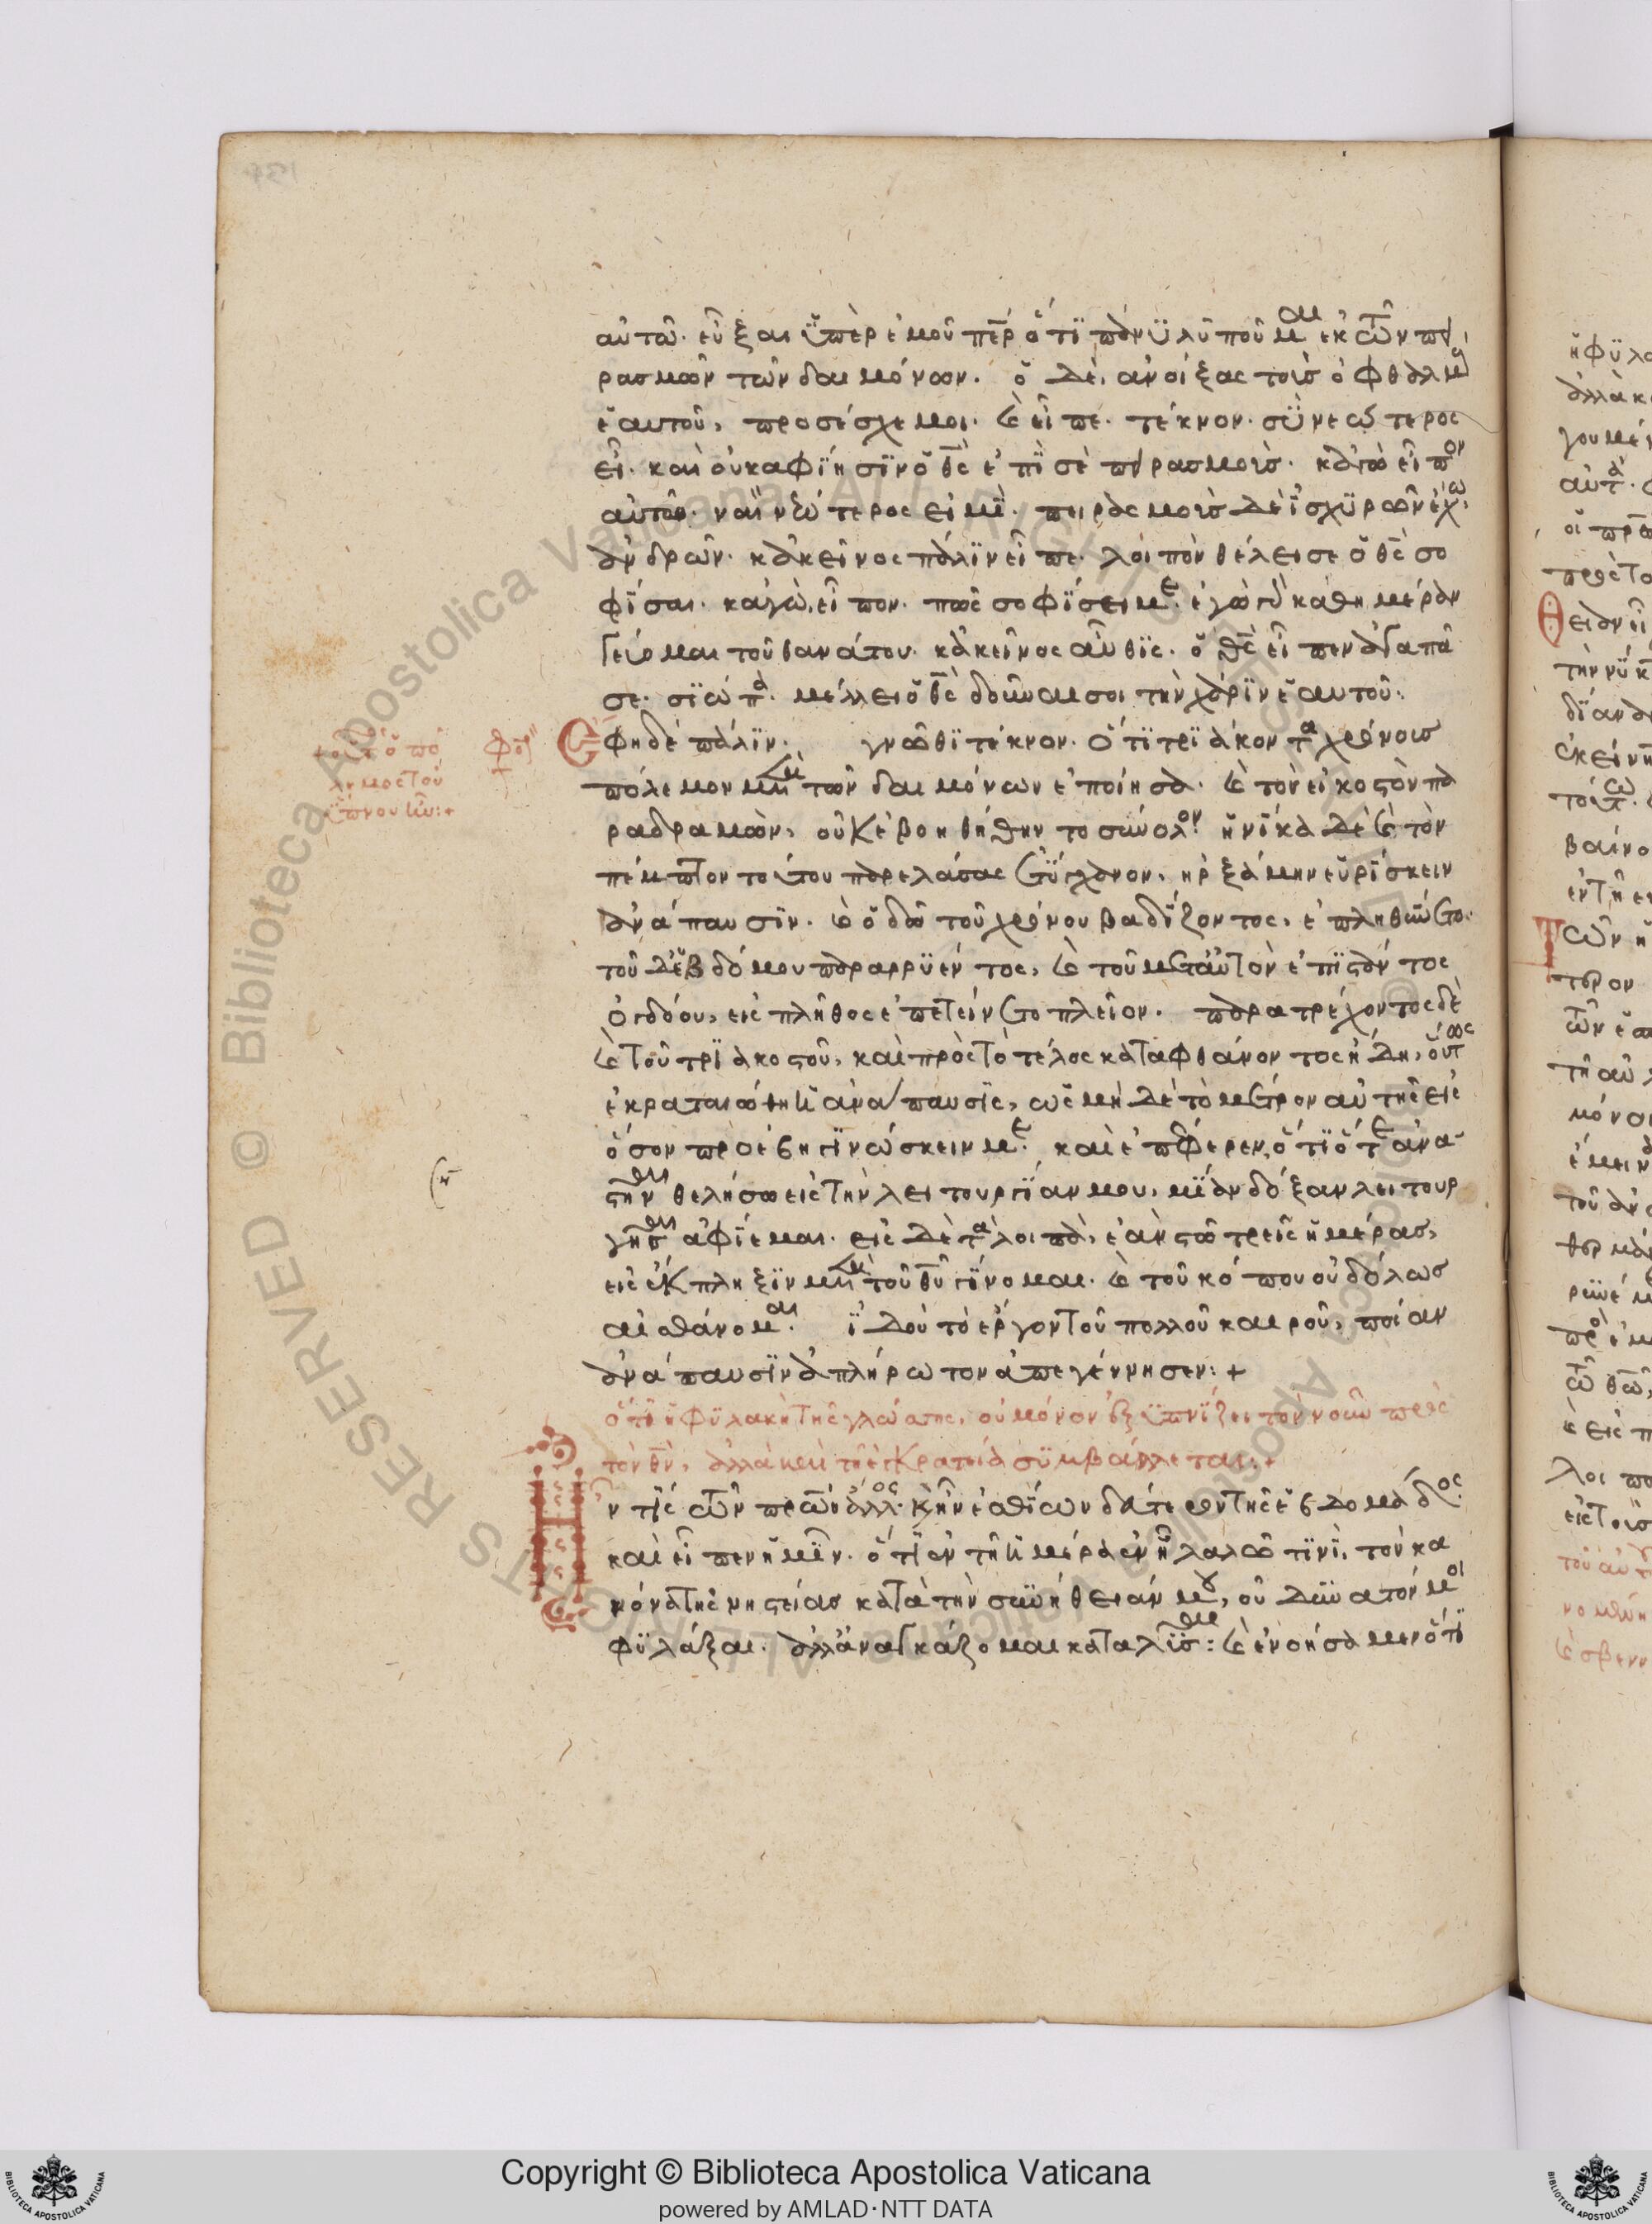 αὐτῶ. εὖξαι ὑπὲρ ἐμοῦ περ ὅτι πάνυ λυποῦμαι ἐκ τῶν πει
ρασμῶν τῶν δαιμόνων. ὁ δὲ, ἀνοίξας τοὺς ὀφθαλμοὺς
ἑαυτοῦ, προσέσχε μοι. καὶ εἶπε. τέκνον. σὺ νεώτερος
εἶ. καὶ οὐκ ἀφίησιν ὁ θς ἐπὶ σὲ πειρασμούς. κἀγὼ εἶπον
αὐτῶ. ναὶ νεώτερος εἰμὶ. πειρασμοὺς δὲ ἰσχυρῶν ἔχω
ἀνδρῶν. κἀκεῖνος πάλιν εἶπε. λοιπὸν θέλει σε ὁ θς σο
φίσαι. καγὼ, εἶπον. πῶς σοφίσει με. ἐγὼ γὰρ καθημέραν
γεύομαι τοῦ θανάτου. κἀκεῖνος αὖθις. ὁ θς εἶπεν ἀγαπᾶ
σε. σιώπα. μέλλει ὁ θς δοῦναι σοι τὴν χάριν ἑαυτοῦ.
Ἔφη δὲ πάλιν. γνῶθι τέκνον. ὅτι τριάκοντα χρόνους
πόλεμον μετὰ τῶν δαιμόνων ἐποίησα. καὶ τὸν εἰκοστὸν πα
ραδραμὼν, οὐκ ἐβοηθήθην τοσύνολον. ἡνίκα δὲ καὶ τὸν
πέμπτον τούτου παρελάσας ἐτύγχανον, ἠρξάμην εὑρίσκειν
ἀνάπαυσιν. καὶ ὁδῶ τοῦ χρόνου βαδίζοντος, ἐπληθύνετο.
τοῦ δὲ ἑβδόμου παραρρυέντος, καὶ τοῦ μετ αὐτὸν ἐπιστάντος
ὀγδόου, εἰς πλῆθος ἐπετείνετο πλεῖον. παρατρέχοντος δὲ
καὶ τοῦ τριακοστοῦ, καὶ πρὸς τὸ τέλος καταφθάνοντος ἤδη, οὕτως
ἐκραταιώθη ἡ ἀνάπαυσις, ὡς μὴ δὲ τὸ μέτρον αὐτῆς εἰς
ὅσον προέβη γινώσκειν με. καὶ ἐπέφερεν, ὅτι ὅτε ἀνα-
στῆναι θελήσω εἰς τὴν λειτουργίαν μου, μίαν δόξαν λειτουρ
γῆσαι ἀφίεμαι. εἰς δὲ τὰ λοιπὰ, ἐὰν στῶ τρεῖς ἡμέρας,
εἰς ἔκπληξιν μετὰ τοῦ θυ γίνομαι. καὶ τοῦ κόπου οὐδόλως
αἰσθάνομαι. ἰδοὺ τὸ ἔργον τοῦ πολλοῦ καιροῦ, ποίαν
ἀνάπαυσιν ἀπλήρωτον ἀπεγέννησεν: +
ὅτι ἡ φυλακὴ τῆς γλώσσης, οὐ μόνον ἐξυπνίζει τὸν νοῦν πρὸς
τὸν θν, ἀλλὰ καὶ τῇ ἐγκρατεία συμβάλλεται: +
Ἦν τίς τῶν πρων ἄλλος. καὶ ἦν ἐσθίων δεύτερον τῆς ἑβδομάδος.
καὶ εἶπεν ἡμῖν. ὅτι ἐν τῆ ἡμέρα ἐν ἧ λαλῶ τινὶ, τὸν κα
νόνα τῆς νηστείας κατὰ τὴν συνήθειάν μου, οὐ δυνατόν μοι
φυλάξαι. ἀλλ ἀναγκάζομαι καταλῦσαι: καὶ ἐνοήσαμεν ὅτι